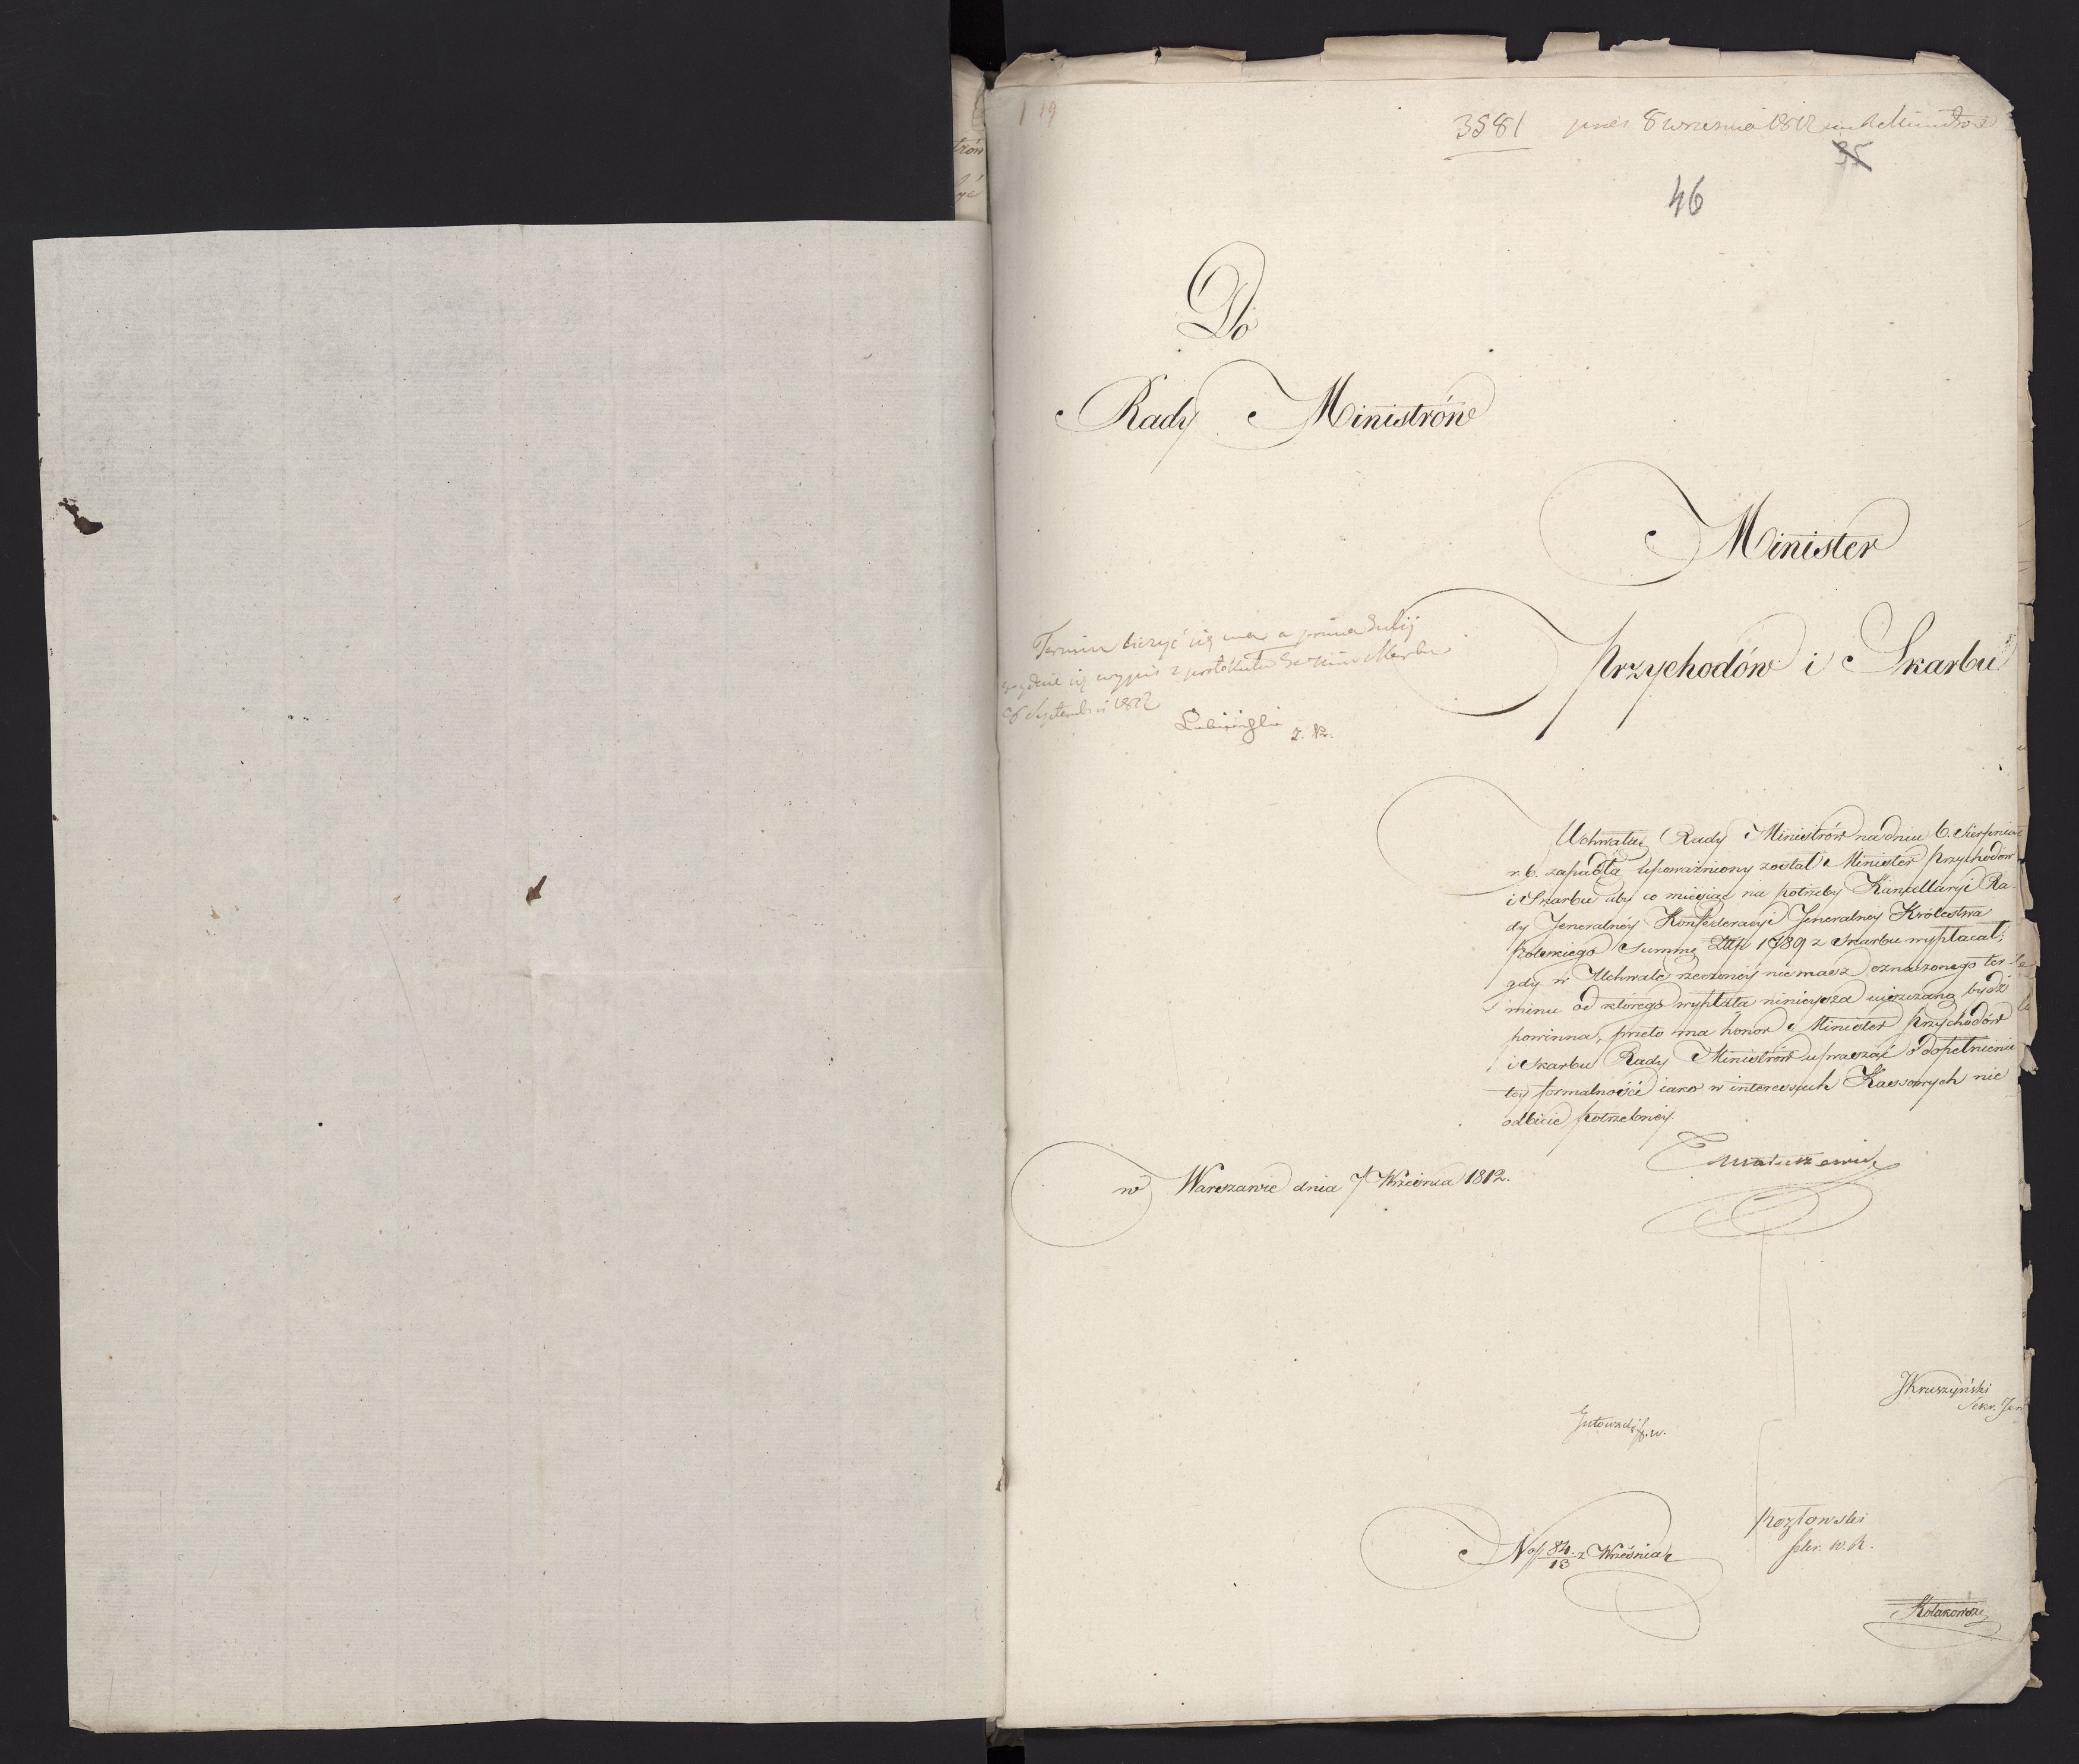 119
3581 pres 8 września 1812
35
46
Do
Rady Ministrów
Minister
Przychodów i Skarbu
Termin liczyć się ma a prima Julij
wypis z protokułu
Septembris 1812
Uchwałą Rady Ministrów na dniu 6. Sierpnia
r. b. zapadłą upoważniony został Minister Przychodów
i Skarbu aby co miesiąc na potrzeby Kancellaryi Ra-
dy Jeneralney Konfederacyi Jeneralney Królestwa
Polskiego Summę Złp 1789 z Skarbu wypłacał;
gdy w Uchwale rzeczoney niemasz oznaczonego ter-
minu od którego wypłata ninieysza uiszczaną bydź
powinna, przeto ma honor Minister Przychodów
i Skarbu Rady Ministrów upraszać o dopełnienie
tey formalności iako w interessach Kassowych nie
odbicie potrzebney.
Matuszewic
w Warszawie dnia 7 Września 1812.
JKruszyński
Sekr. Jen
Kozłowski
No 84/13 z Września
Kołakowski